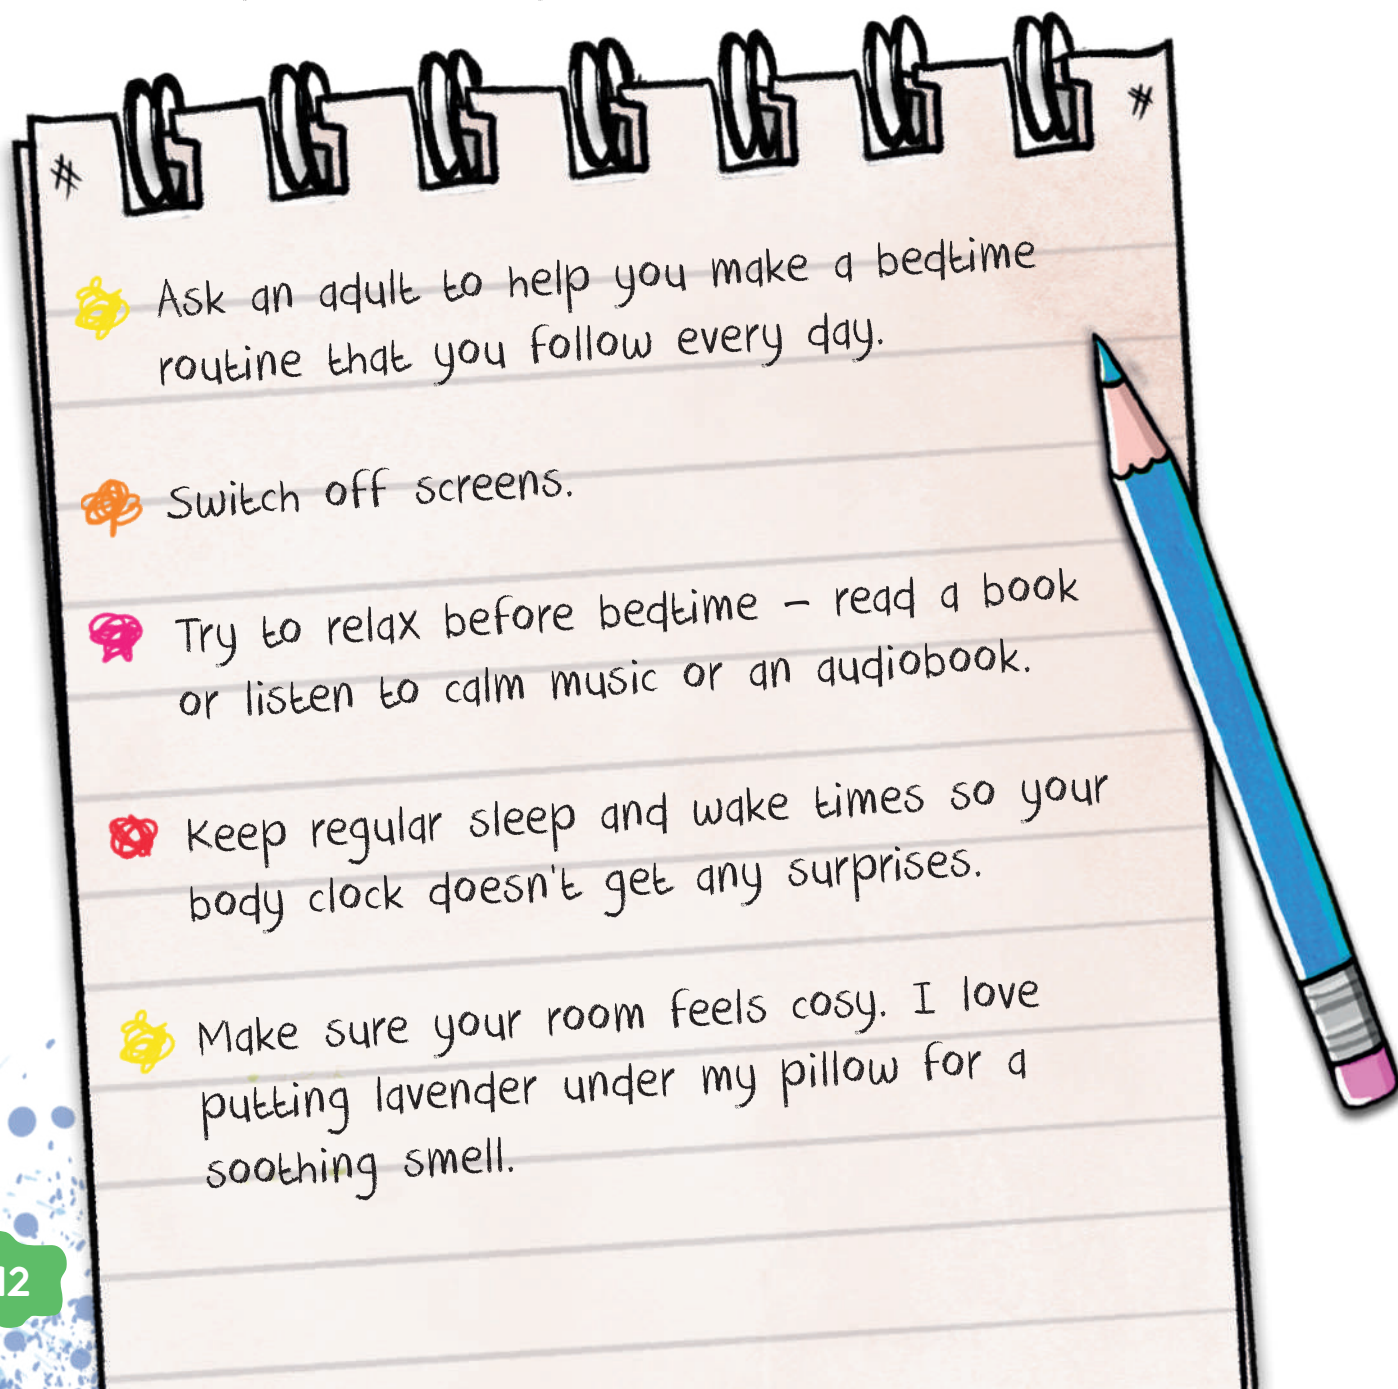 Ask an adult to help you make a bedtime
routine that you follow every day.
Switch off screens.
Try to relax before bedtime – read a book
or listen to calm music or an audiobook.
Keep regular sleep and wake times so your
body clock doesn't get any surprises.
Make sure your room feels cosy. I love
putting lavender under my pillow for a
soothing smell.
12